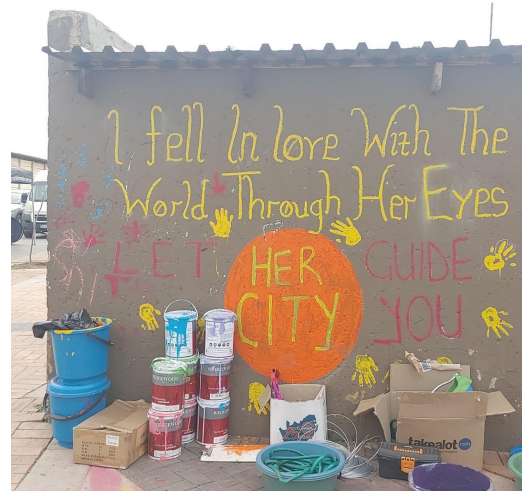 I fell In love With The
World Through Her Eyes
LET HER GUIDE
CITY YOU
takealot